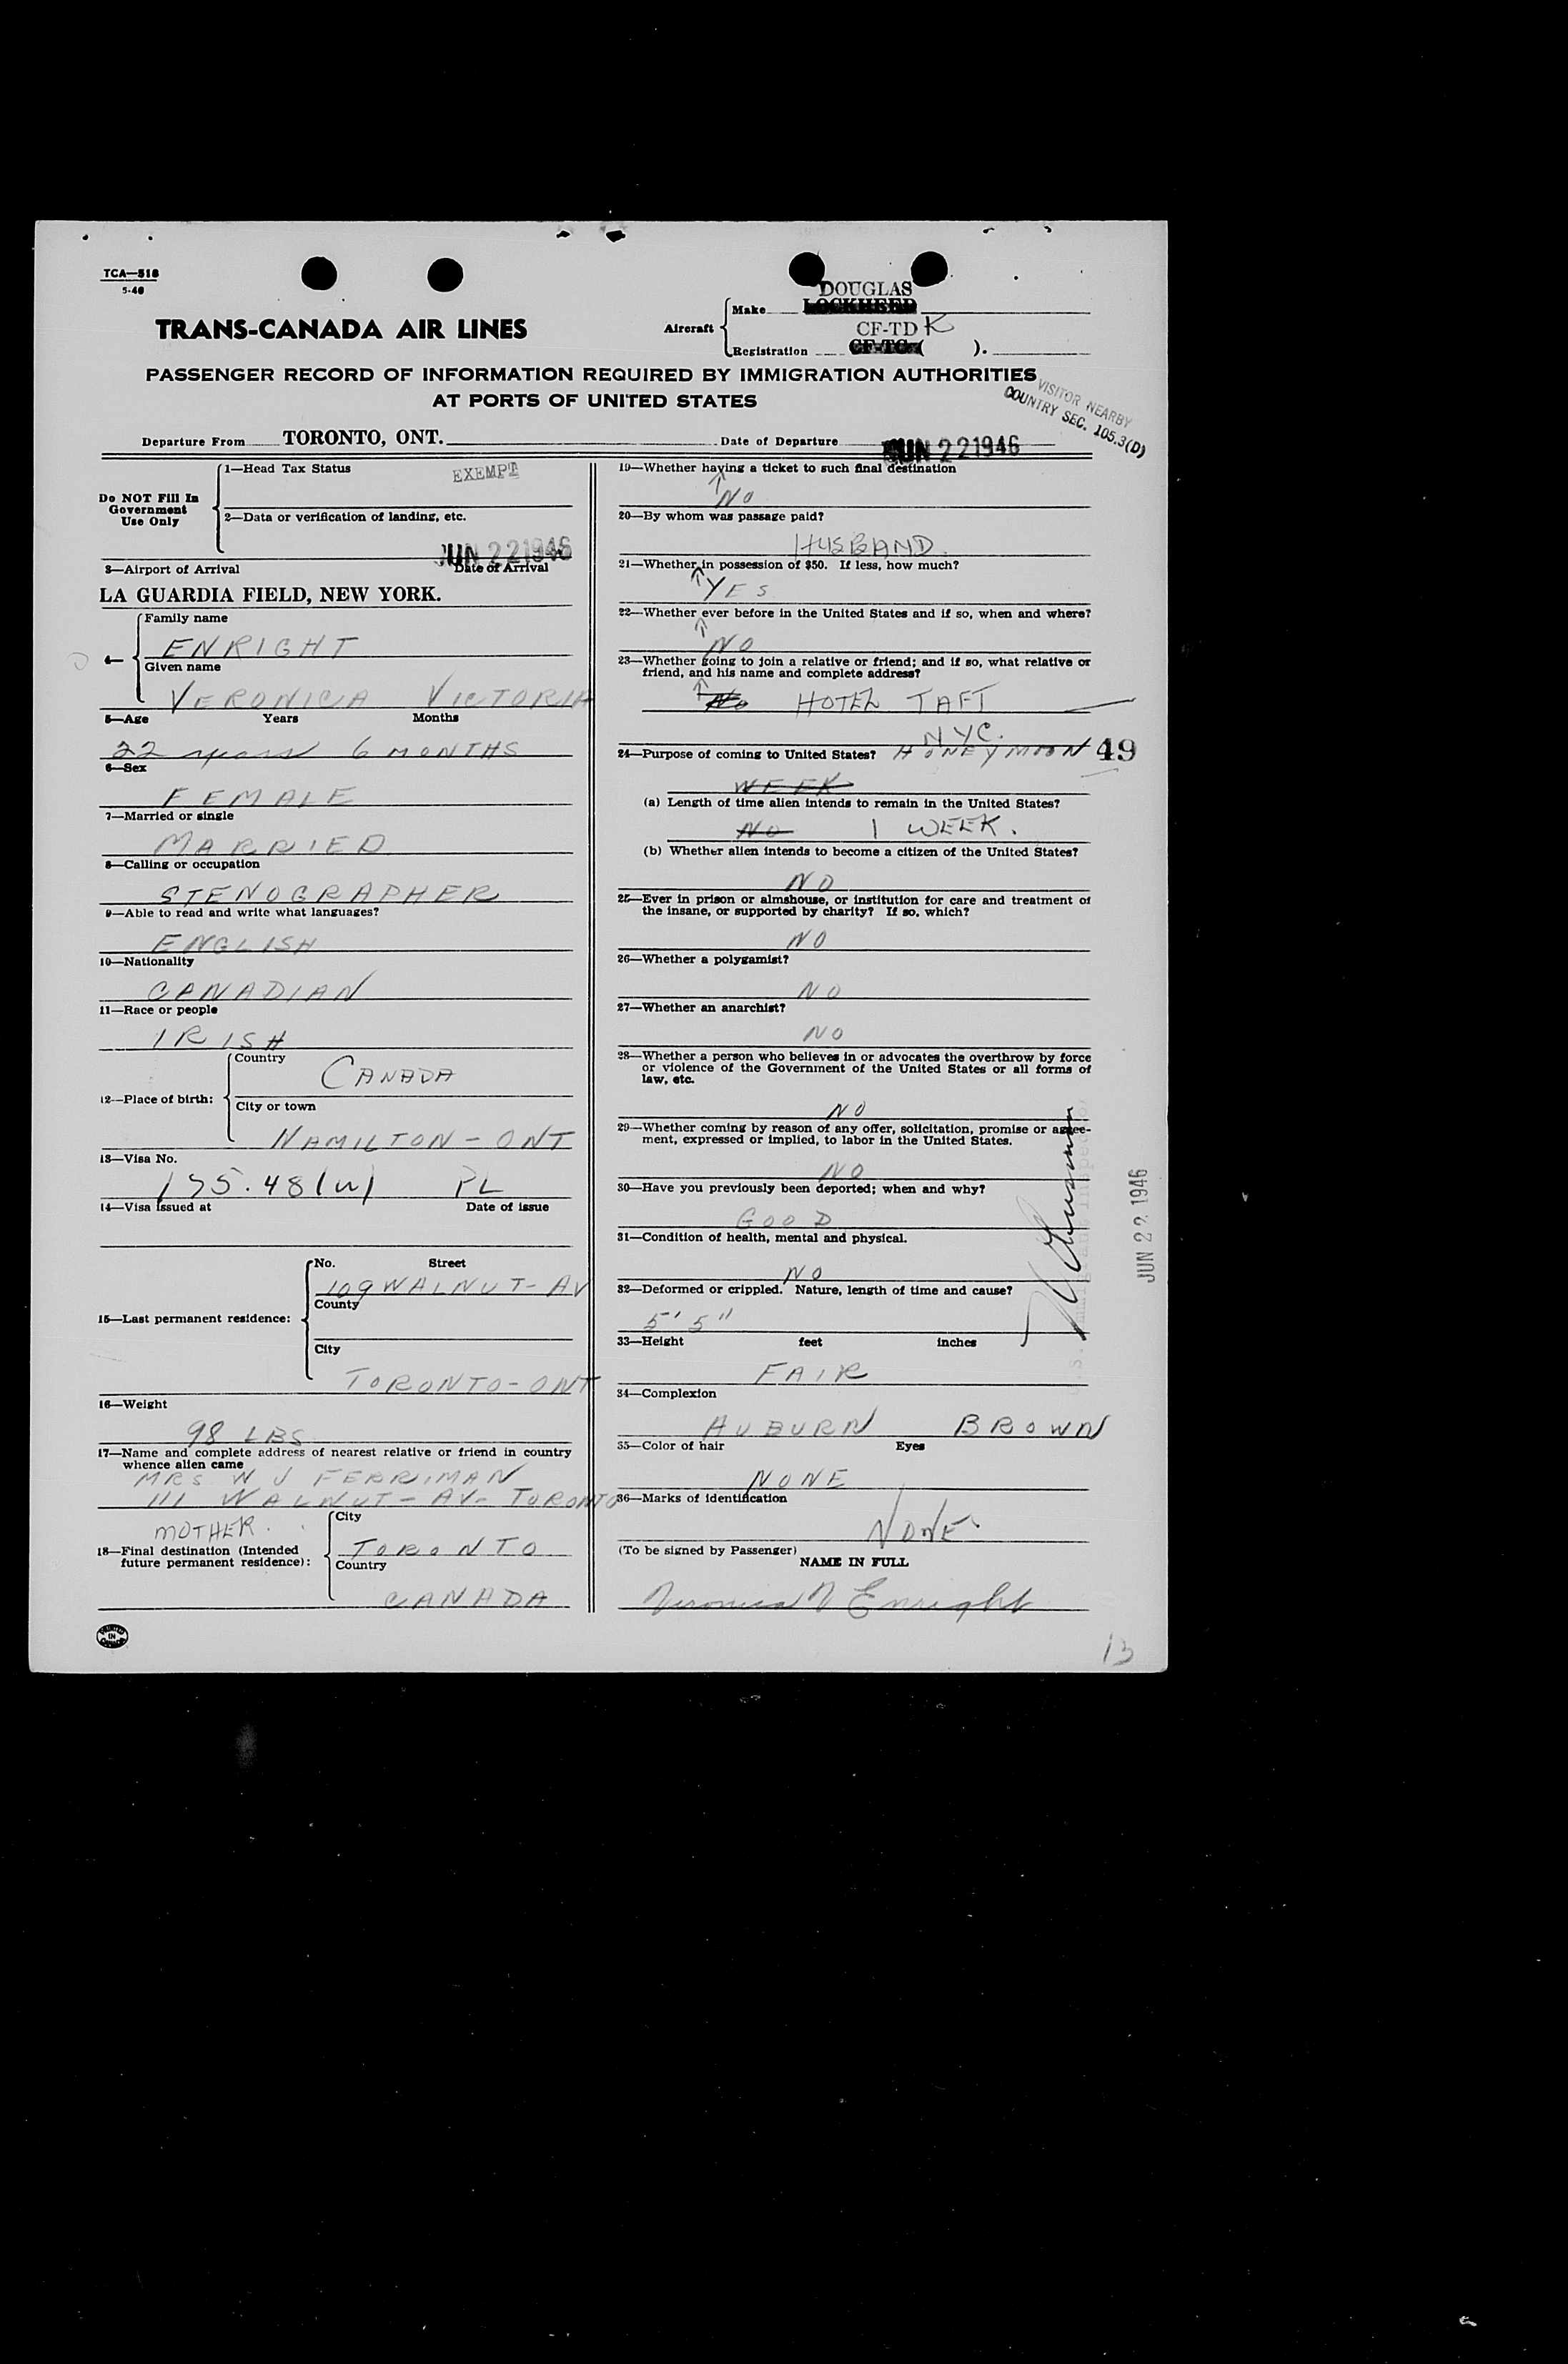 TCA—518
5-46
DOUGLAS
Make LOCKHEED
TRANS-CANADA AIR LINES
Aircraft
CF-TD K
Registration CF-TC- ( ).
PASSENGER RECORD OF INFORMATION REQUIRED BY IMMIGRATION AUTHORITIES
AT PORTS OF UNITED STATES
VISITOR NEARBY
COUNTRY SEC. 105.3(D)
Departure From TORONTO, ONT. Date of Departure JUN 22 1946
Do NOT Fill In
Government
Use Only
1—Head Tax Status EXEMPT
2—Data or verification of landing, etc.
JUN 22 1946
3—Airport of Arrival Date of Arrival
LA GUARDIA FIELD, NEW YORK.
4—
Family name
ENRIGHT
Given name
VERONICA VICTORIA
5—Age Years Months
22 years 6 MONTHS
6—Sex
FEMALE
7—Married or single
MARRIED
8—Calling or occupation
STENOGRAPHER
9—Able to read and write what languages?
ENGLISH
10—Nationality
CANADIAN
11—Race or people
IRISH
12—Place of birth:
Country
CANADA
City or town
HAMILTON - ONT
13—Visa No.
175.48(w) PL
14—Visa issued at Date of issue
15—Last permanent residence:
No. Street
109 WALNUT - AV
County
City
TORONTO - ONT
16—Weight
98 LBS
17—Name and complete address of nearest relative or friend in country
whence alien came
MRS W J FERRIMAN
111 WALNUT - AV - TORONTO
MOTHER.
18—Final destination (Intended
future permanent residence):
City
TORONTO
Country
CANADA
PRINTED
IN
CANADA
19—Whether having a ticket to such final destination
NO
20—By whom was passage paid?
HUSBAND.
21—Whether in possession of $50. If less, how much?
YES
22—Whether ever before in the United States and if so, when and where?
NO
23—Whether going to join a relative or friend; and if so, what relative or
friend, and his name and complete address?
No HOTEL TAFT
NYC.
24—Purpose of coming to United States? HONEYMOON 49
WEEK
(a) Length of time alien intends to remain in the United States?
No 1 WEEK.
(b) Whether alien intends to become a citizen of the United States?
NO
25—Ever in prison or almshouse, or institution for care and treatment of
the insane, or supported by charity? If so, which?
NO
26—Whether a polygamist?
NO
27—Whether an anarchist?
NO
28—Whether a person who believes in or advocates the overthrow by force
or violence of the Government of the United States or all forms of
law, etc.
NO
29—Whether coming by reason of any offer, solicitation, promise or agree-
ment, expressed or implied, to labor in the United States.
NO
30—Have you previously been deported; when and why?
GOOD
31—Condition of health, mental and physical.
NO
32—Deformed or crippled. Nature, length of time and cause?
5' 5"
33—Height feet inches
FAIR
34—Complexion
AUBURN BROWN
35—Color of hair Eyes
NONE
36—Marks of identification
NONE.
(To be signed by Passenger)
NAME IN FULL
Veronica V Enright
JUN 22 1946
13